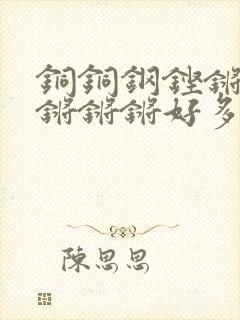 銅銅鋼鏗鏘
鏘鏘鏘好多
陳思思